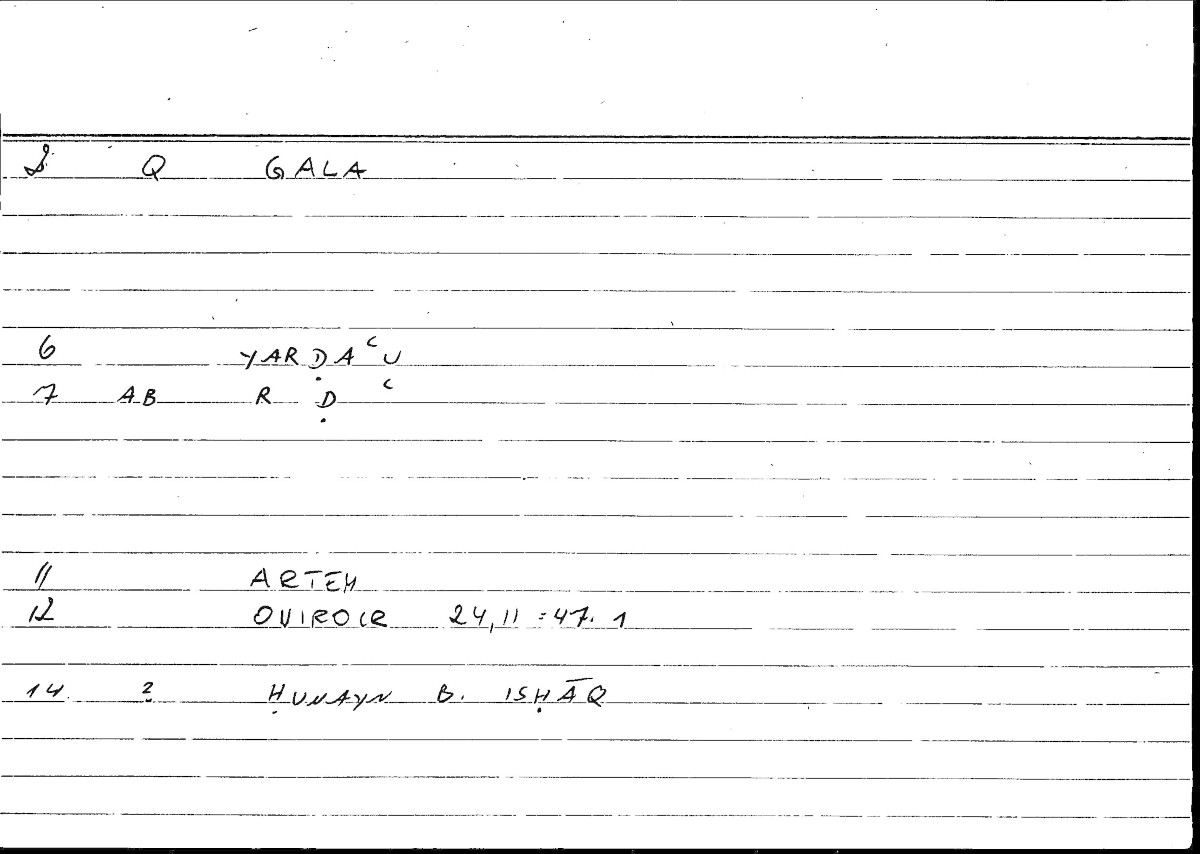 Q GALA
6 YARḌAʿU
7 AB R Ḍ ʿ
11 ARTEM
12 OVIROCR 24,11 = 47. 1
14 ? ḤUNAYN B. ISḤĀQ